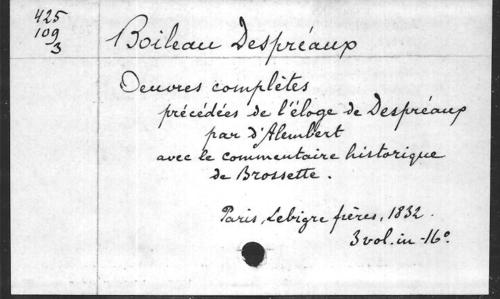 425
109
3
Boileau Despréaux
Oeuvres complètes
précédées de l'éloge de Despréaux
par d'Alembert
avec le commentaire historique
de Brossette.
Paris, Lebigre frères, 1832.
3 vol. in-16°